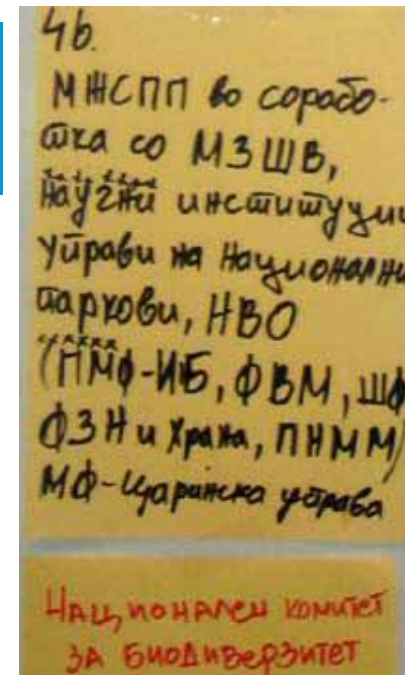 4b.
МЖСПП во сорабо-
тка со МЗШВ,
научни институции
управи на национални
паркови, НВО
(ПМФ-ИБ, ФВМ, ШФ
ФЗН и Храна, ПНММ)
МФ-Царинска управа
НАЦИОНАЛЕН КОМИТЕТ
ЗА БИОДИВЕРЗИТЕТ